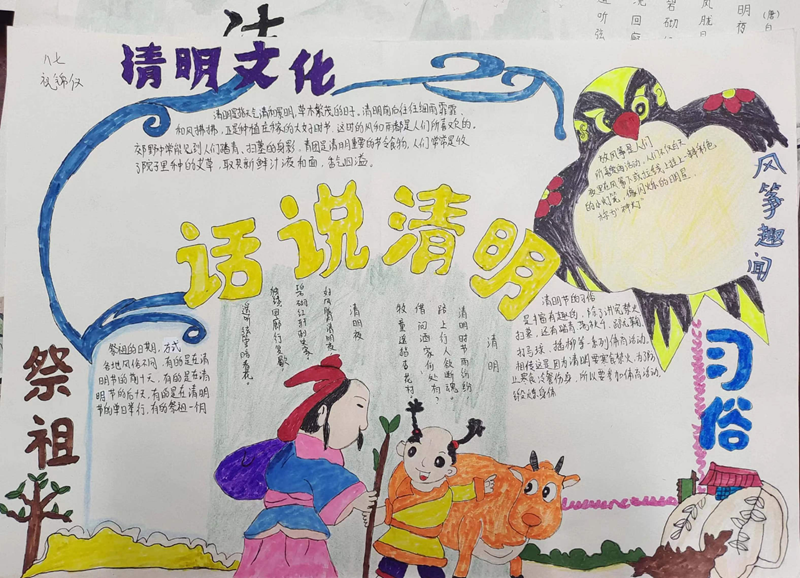 八七
清明文化
清明是指天气清和景明,草木繁茂的日子。清明前后往往细雨霏霏,
和风拂拂,正是种植庄稼的大好时节,这时的风和雨都是人们所喜欢的。
郊野中常能见到人们踏青、扫墓的身影,青团是清明重要的节令食物,人们常常是收
了院子里种的艾草,取其新鲜汁液和面,
话说清明
放风筝是人们
所喜爱的活动。人们不仅白天
的小灯笼,像闪烁的明星,
风筝趣闻
清明节的习俗
是丰富有趣的,除了讲究禁火
扫墓,还有踏青、荡秋千、蹴鞠、
打马球、插柳等一系列体育活动。
相传这是因为清明节要寒食禁火,为防
止寒食冷餐伤身,所以要参加体育活动,
锻炼身体
习俗
清明
清明时节雨纷纷
路上行人欲断魂
借问酒家何处有
牧童遥指杏花村
清明夜
好风胧月清明夜
碧砌红轩刺史家
独绕回廊行复歇
遥听弦管暗看花
祭祖的日期,方式
各地风俗不同,有的是在清
明节的前十天,有的是在清
明节的后十天,有的是在清明
节的单日举行,有的祭祖一个月
祭祖